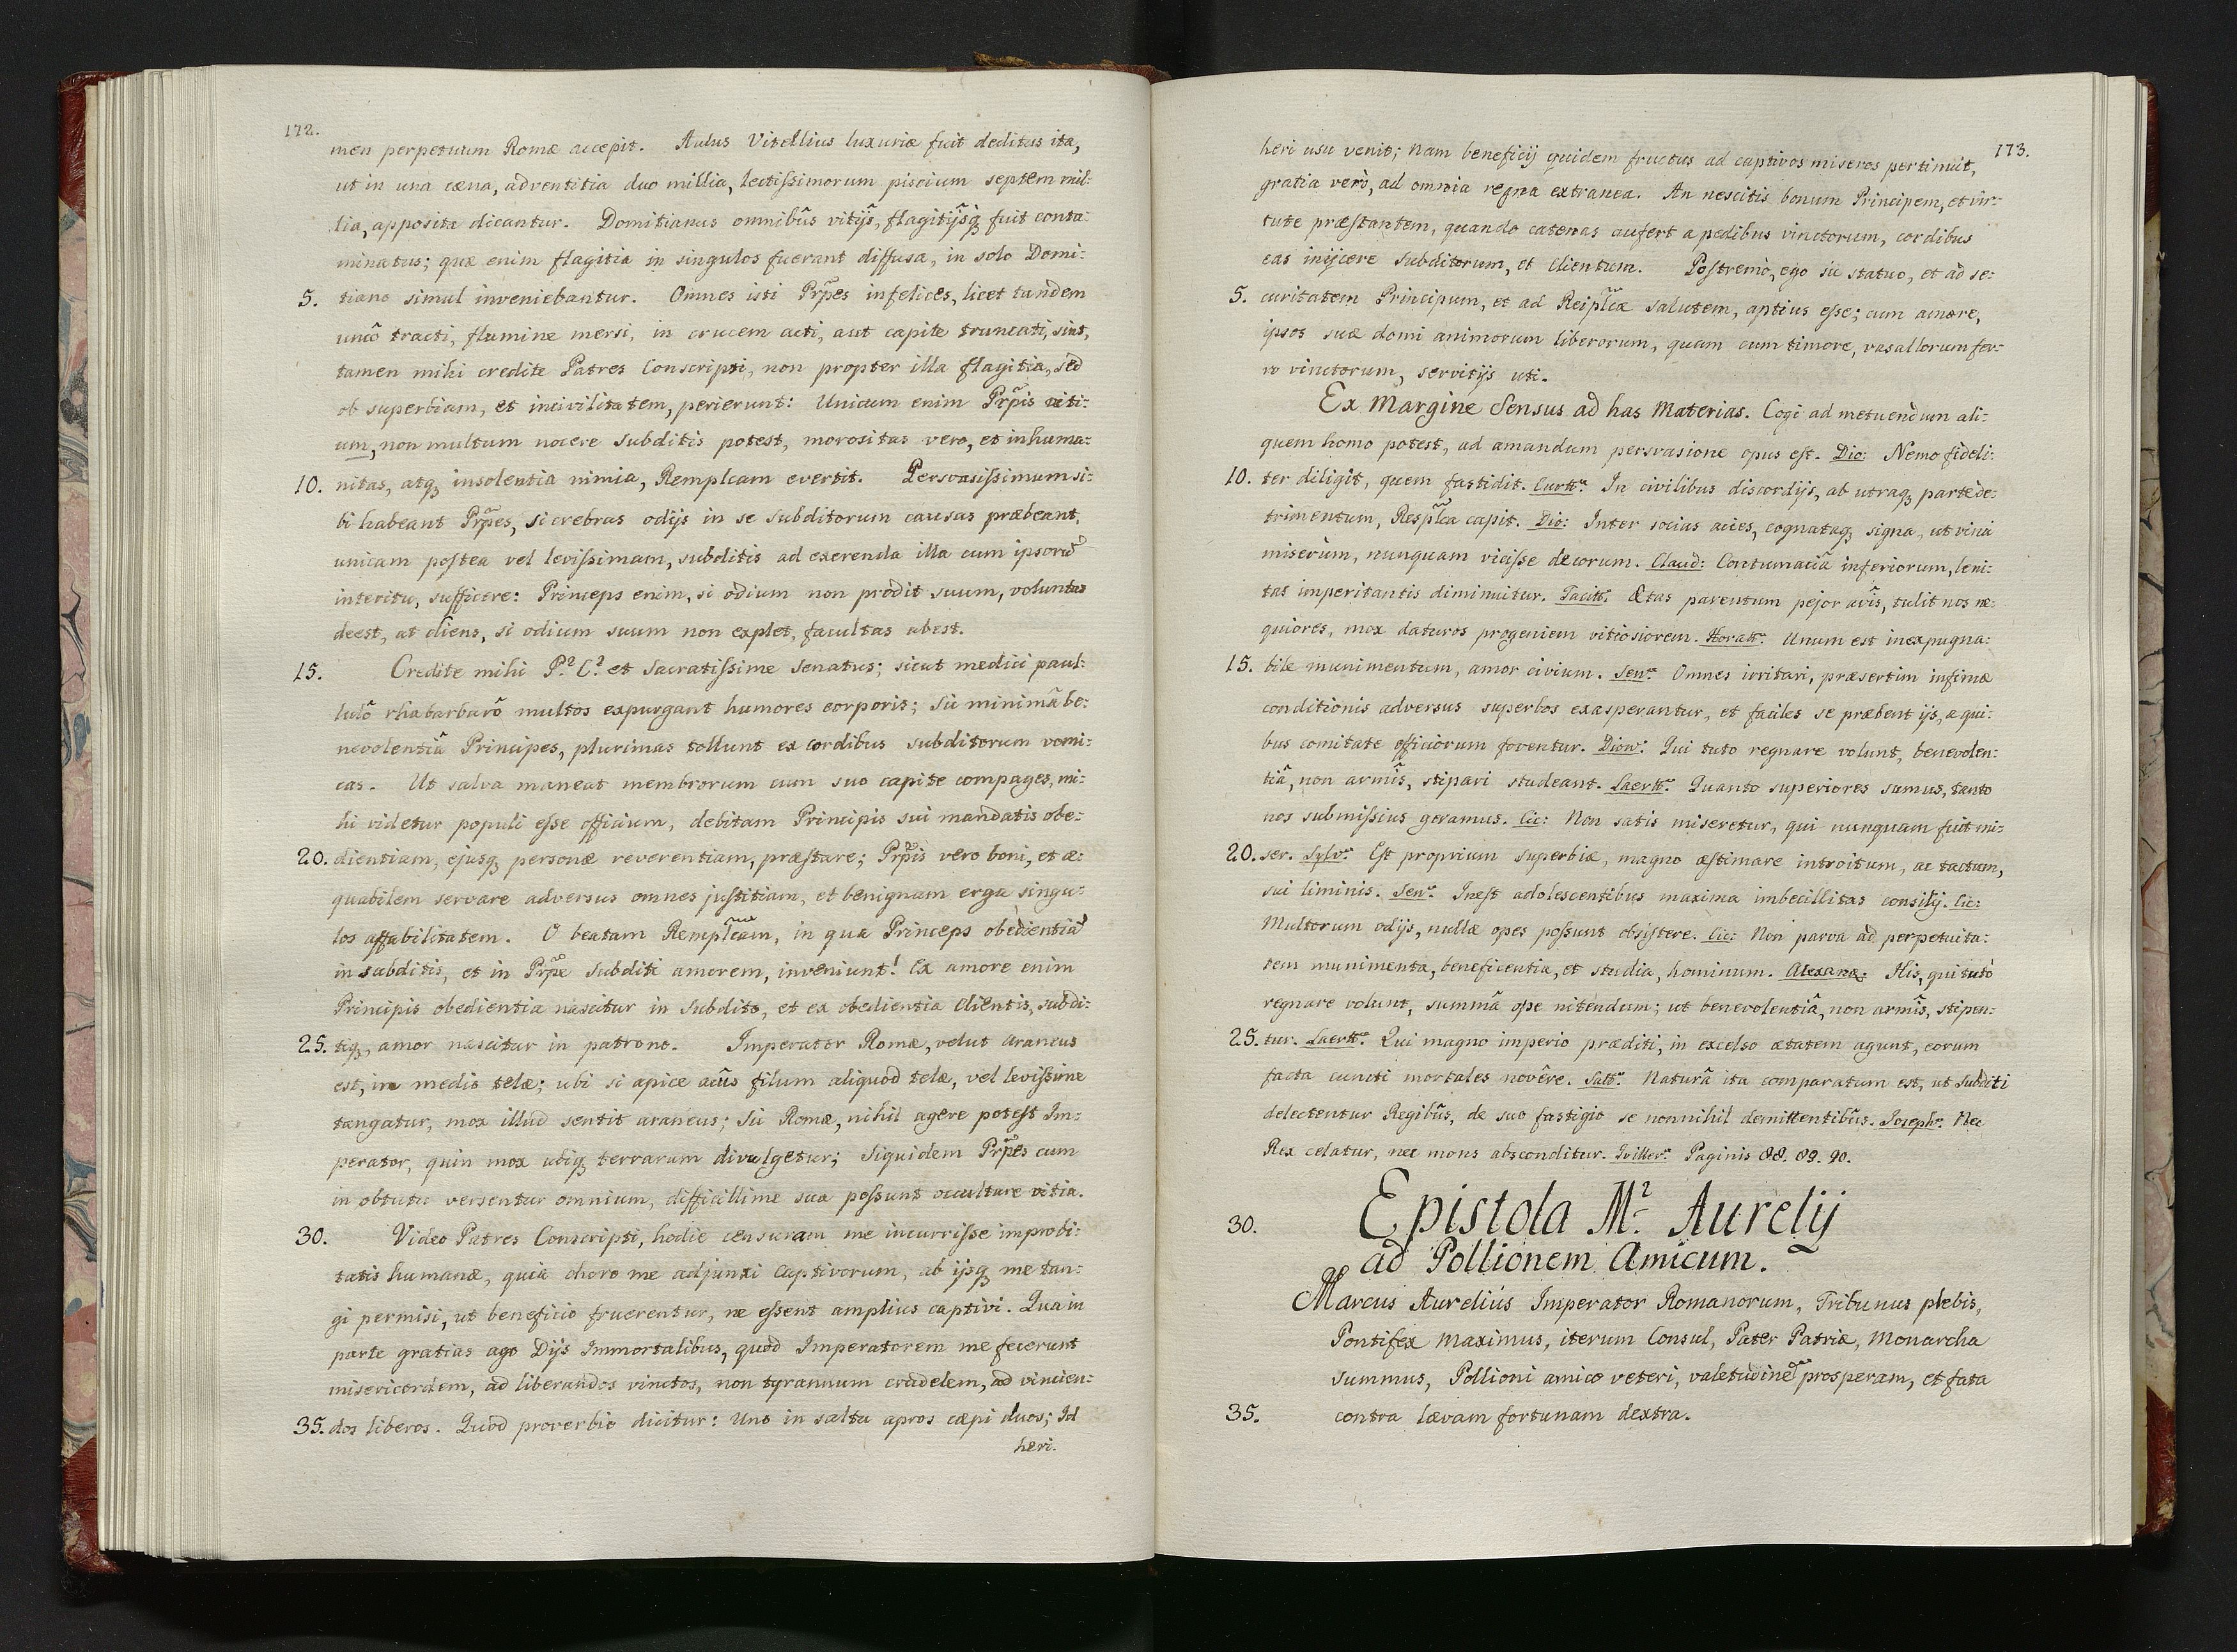 172.
men perpetuum Romæ accepit. Aulus Vitellius luxuriæ fuit deditus ita,
ut in una cæna, adventitia duo millia, lectiſsimorum piscium septem mil:
lia, apposita dicantur. Domitianus omnibûs vitijs, flagitijsq; fuit conta:
minatus; quæ enim flagitia in singulos fuerant diffusa, in solo Domi:
5. tiano simul inveniebantur. Omnes isti Prp̃es infelices, licet tandem
uncô tracti, flumine mersi, in crucem acti, aut capite truncati, sint,
tamen mihi credite Patres Conscripti, non propter illa flagitia, sed
ob superbiam, et incivilitatem, perierunt: Unicum enim Prp̃is viti:
um, non multum nocere subditis potest, morositas vero, et inhuma:
10. nitas, atq; insolentia nimia, Remplcam evertit. Persvasiſsimum si:
bi habeant Prp̃es, si crebras odijs in se subditorum causas præbeant,
unicam poſtea vel leviſsimam, subditis ad exerenda illa cum ipsorũ
interitu, sufficere: Princeps enim, si odium non prodit suum, voluntas
deest, at cliens, si odium suum non explet, facultas abest.
15. Credite mihi P.² C.² et sacratiſsime senatus; sicut medici paul:
lulô rhabarbarô multos expurgant humores corporis; sic minimâ be:
nevolentiâ Principes, plurimas tollunt ex cordibus subditorum vomi:
cas. Ut salva maneat membrorum cum suo capite compages, mi:
hi videtur populi eſse officium, debitam Principis sui mandatis obe:
20. dientiam, ejusq; personæ reverentiam, præſtare; Prp̃is vero boni, et æ:
quabilem servare adversus omnes juſtitiam, et benignam erga singu:
los affabilitatem. O beatam Remplc̃am, in qua Princeps obedientiã
in subditis, et in Prp̃e subditi amorem, inveniunt! Ex amore enim
Principis obedientia nascitur in subdito, et ex obedientia clientis, subdi:
25. tiq;, amor nascitur in patrono. Imperator Romæ, velut araneus
est, in medio telæ; ubi si apice acûs filum aliquod telæ, vel leviſsime
tangatur, mox illud sentit araneus; sic Romæ, nihil agere poteſt Im:
perator, quin mox ubiq; terrarum divulgetur; siquidem Prp̃es cum
in obtutu versentur omnium, difficillime sua poſsunt occultare vitia.
30. Video Patres Conscripti, hodie censuram me incurriſse improbi:
tatis humanæ, quia choro me adjunxi captivorum, ab ijsq; me tan:
gi permisi, ut beneficio fruerentur, ne eſsent amplius captivi. Qua in
parte gratias ago Dijs Immortalibus, quod Imperatorem me fecerunt
misericordem, ad liberandos vinctos, non tyrannum crudelem, ad vincien:
35. dos liberos. Quod proverbio dicitur: Uno in saltu apros cæpi duos; Id
heri.
173.
heri usu venit; Nam beneficij quidem fructus ad captivos miseros pertinuit,
gratia verò, ad omnia regna extranea. An nescitis bonum Principem, et vir:
tute præſtantem, quando catenas aufert a pedibus vinctorum, cordibus
eas inijcere subditorum, et clientum. Poſtremò, ego sic statuo, et ad se:
5. curitatem Principum, et ad Reiplc̃æ salutem, aptius eſse; cum amore,
ipsos suæ domi animorum liberorum, quam cum timore, vasallorum fer:
ro vinctorum, servitijs uti.
Ex Margine Sensus ad has Materias. Cogi ad metuendum ali:
quem homo potest, ad amandum persvasione opus eſt. Dio: Nemo fideli:
10. ter diligit, quem fastidit. Curtt: In civilibus discordijs, ab utraq; parte de:
trimentum, Resplc̃a capit. Dio: Inter socias acies, cognataq; signa, ut vinci
miserum, nunquam viciſse decorum. Claud: Contumaciâ inferiorum, leni:
tas imperitantis diminuitur. Tacitt: Ætas parentum pejor avîs, tulit nos ne:
quiores, mox daturos progeniem vitiosiorem. Horatt: Unum est inexpugna:
15. bile munimentum, amor civium. Sen: Omnes irritari, præsertim infimæ
conditionis adversus superbos exasperantur, et faciles se præbent ijs, a qui:
bus comitate officiorum foventur. Dion: Qui tuto regnare volunt, benevolen:
tiâ, non armîs, stipari studeant. Laertt: Quanto superiores sumus, tanto
nos submiſsius geramus. Cic: Non satis miseretur, qui nunquam fuit mi:
20. ser. Sylv: Eſt proprium superbiæ, magno æſtimare introitum, ac tactum,
sui liminis. Sen: Ineſt adolescentibus maxima imbecillitas consilij. Cic:
Multorum odijs, nullæ opes poſsunt obsiſtere. Cic: Non parva ad perpetuita:
tem munimenta, beneficentia, et studia, hominum. Alexand: His, qui tutò
regnare volunt, summâ ope nitendum; ut benevolentiâ, non armîs, stipen:
25. tur. Laertt: Qui magno imperio præditi, in excelso ætatem agunt, eorum
facta cuncti mortales novêre. Salt: Naturâ ita comparatum est, ut subditi
delectentur Regibûs, de suo fastigio se nonnihil demittentibûs. Joseph: Nec
Rex celatur, nec mons absconditur. Sviller: Paginis 88. 89. 90.
30. Epistola M.² Aurelij
ad Pollionem Amicum.
Marcus Aurelius Imperator Romanorum, Tribunus plebis,
Pontifex Maximus, iterum Consul, Pater Patriæ, Monarcha
summus, Pollioni amico veteri, valetudinẽ prosperam, et fata
35. contra lævam fortunam dextra.